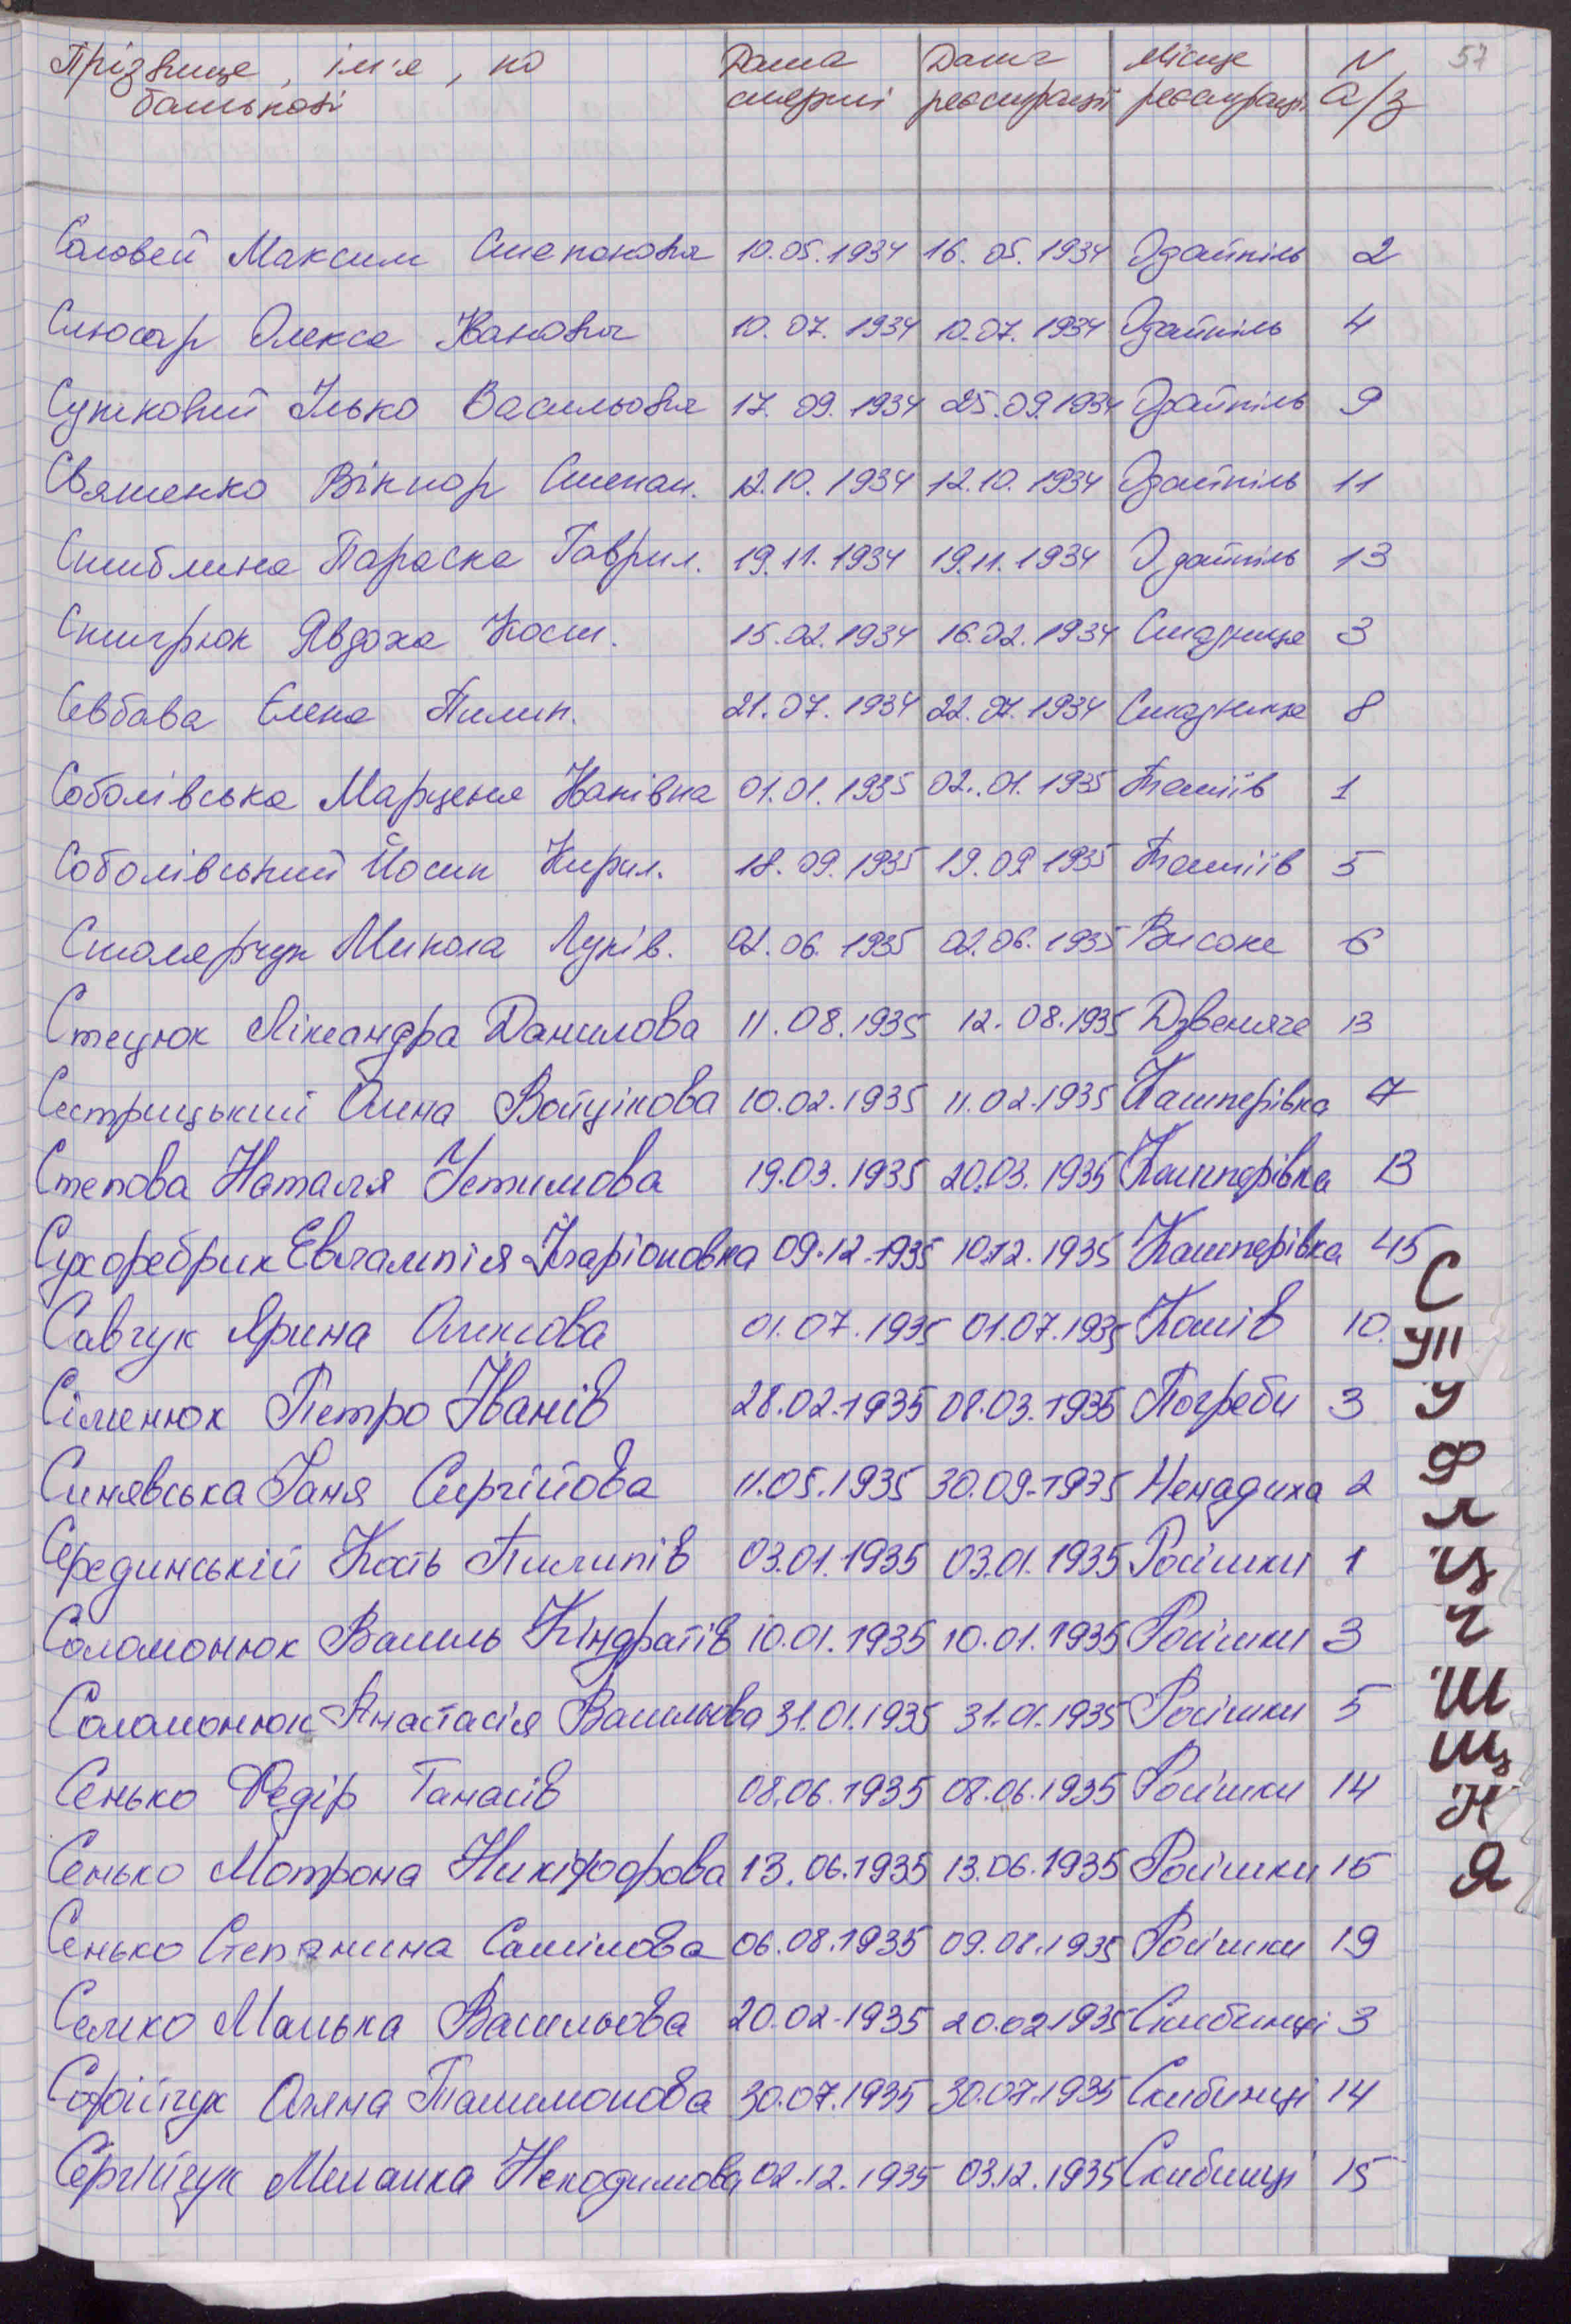 Прізвище, ім'я, по Дата Дата Місце N 57
батькові смерті реєстрації реєстрації а/з
Соловей Максим Степанович 10.05.1934 16.05.1934 Одайпіль 2
Слюсар Олекса Іванович 10.07.1934 10.07.1934 Одайпіль 4
Сутковий Ілько Васильович 17.09.1934 25.09.1934 Одайпіль 9
Святенко Віктор Степан. 12.10.1934 12.10.1934 Одайпіль 11
Параска Гаврил. 19.11.1934 19.11.1934 Одайпіль 13
Явдоха Кост. 15.02.1934 16.02.1934 Стадниця 3
Севбава Єлена Пилип. 21.07.1934 22.07.1934 Стадниця 8
Соболівська Марценя Іванівна 01.01.1935 02.01.1935 1
Соболівський Йосип Кирил. 18.09.1935 19.09.1935 5
Столярчук Микола Луків. 02.06.1935 02.06.1935 Високе 6
Стецюк Ліксандра Данилова 11.08.1935 12.08.1935 Дзвеняче 13
Сестрицький Олина Войцікова 10.02.1935 11.02.1935 Кашперівка 7
Степова Наталя Устимова 19.03.1935 20.03.1935 Кашперівка 13
Сухоребрик Евгампія Іларіоновна 09.12.1935 10.12.1935 Кашперівка 45
Савчук Ярина 01.07.1935 01.07.1935 10.
Сіменюк Петро Іванів 28.02.1935 08.03.1935 Погреби 3
Синявська Ганя Сиргійова 11.05.1935 30.09.1935 Ненадиха 2
Серединській Кость Пилипів 03.01.1935 03.01.1935 Росішки 1
Соломонюк Василь Кіндратів 10.01.1935 10.01.1935 Росішки 3
Соломонюк Анастасія Васильова 31.01.1935 31.01.1935 Росішки 5
Сенько Федір Танасів 08.06.1935 08.06.1935 Росішки 14
Сенько Мотрона Никіфорова 13.06.1935 13.06.1935 Росішки 15
Сенько Степанина Самілова 06.08.1935 09.08.1935 Росішки 19
Семко Манька Васильова 20.02.1935 20.02.1935 Скибинці 3
Софійчук Оляна 30.07.1935 30.07.1935 Скибинці 14
Сергійчук Меланка Некодимова 02.12.1935 03.12.1935 Скибинці 15
С
У
Ф
Ц
Ч
Ш
Щ
Я